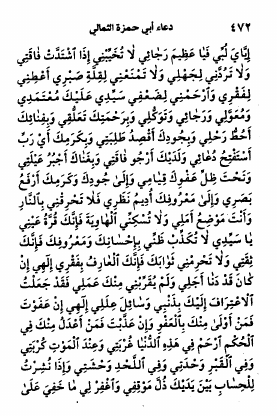 ٤٧٢ دعاء أبي حمزة الثمالي
إِيَّايَ لُبِّي فَيَا عَظِيمَ رَجَائِي لَا تُخَيِّبْنِي إِذَا اشْتَدَّتْ فَاقَتِي
وَلَا تَرُدَّنِي لِجَهْلِي وَلَا تَمْنَعْنِي لِقِلَّةِ صَبْرِي أَعْطِنِي
لِفَقْرِي وَارْحَمْنِي لِضَعْفِي سَيِّدِي عَلَيْكَ مُعْتَمَدِي
وَمُعَوَّلِي وَرَجَائِي وَتَوَكُّلِي وَبِرَحْمَتِكَ تَعَلُّقِي وَبِفِنَائِكَ
أَحُطُّ رَحْلِي وَبِجُودِكَ أَقْصُدُ طَلِبَتِي وَبِكَرَمِكَ أَيْ رَبِّ
أَسْتَفْتِحُ دُعَائِي وَلَدَيْكَ أَرْجُو فَاقَتِي وَبِغِنَاكَ أَجْبُرُ عَيْلَتِي
وَتَحْتَ ظِلِّ عَفْوِكَ قِيَامِي وَإِلَىٰ جُودِكَ وَكَرَمِكَ أَرْفَعُ
بَصَرِي وَإِلَىٰ مَعْرُوفِكَ أُدِيمُ نَظَرِي فَلَا تُحْرِقْنِي بِالنَّارِ
وَأَنْتَ مَوْضِعُ أَمَلِي وَلَا تُسْكِنِّي الْهَاوِيَةَ فَإِنَّكَ قُرَّةُ عَيْنِي
يَا سَيِّدِي لَا تُكَذِّبْ ظَنِّي بِإِحْسَانِكَ وَمَعْرُوفِكَ فَإِنَّكَ
ثِقَتِي وَلَا تَحْرِمْنِي ثَوَابَكَ فَإِنَّكَ الْعَارِفُ بِفَقْرِي إِلٰهِي إِنْ
كَانَ قَدْ دَنَا أَجَلِي وَلَمْ يُقَرِّبْنِي مِنْكَ عَمَلِي فَقَدْ جَعَلْتُ
الْاعْتِرَافَ إِلَيْكَ بِذَنْبِي وَسَائِلَ عِلَلِي إِلٰهِي إِنْ عَفَوْتَ
فَمَنْ أَوْلَىٰ مِنْكَ بِالْعَفْوِ وَإِنْ عَذَّبْتَ فَمَنْ أَعْدَلُ مِنْكَ فِي
الْحُكْمِ ارْحَمْ فِي هَذِهِ الدُّنْيَا غُرْبَتِي وَعِنْدَ الْمَوْتِ كُرْبَتِي
وَفِي الْقَبْرِ وَحْدَتِي وَفِي اللَّحْدِ وَحْشَتِي وَإِذَا نُشِرْتُ
لِلْحِسَابِ بَيْنَ يَدَيْكَ ذُلَّ مَوْقِفِي وَاغْفِرْ لِي مَا خَفِيَ عَلَىٰ